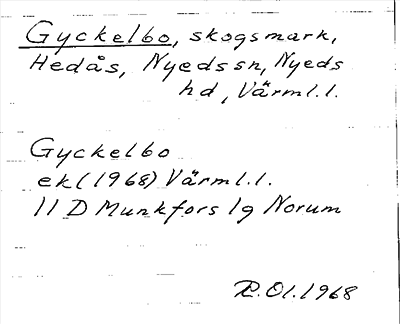 Gyckelbo, skogsmark,
Hedås, Nyedssn, Nyeds
hd, Värml.l.
Gyckelbo
ek (1968) Värml.l.
11 D Munkfors 1g Norum
R.Ol.1968